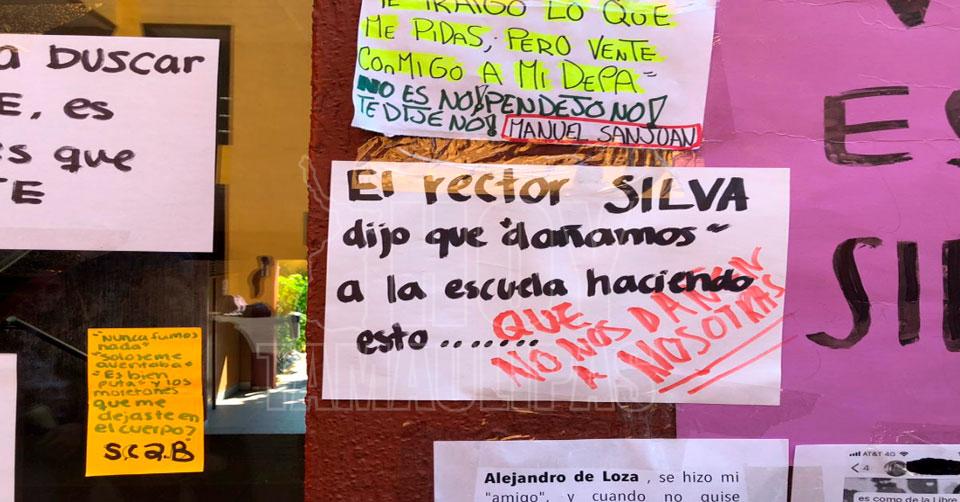 a buscar
E, es
es que
TE
"Nunca fuimos
nada"
"Solo se me
aventaba"
"Es bien
puta" y los
moretones
que me
dejaste en
el cuerpo?
S.C 2.B
TE TRAIGO LO QUE
ME PIDAS, PERO VENTE
CONMIGO A MI DEPA"
NO ES NO! PENDEJO NO!
TE DIJE NO! MANUEL SANJUAN
El rector SILVA
dijo que "dañamos"
a la escuela haciendo
esto .......
QUE
NO NOS DAÑEN
A NOSOTRAS
HOY
TAMAULIPAS
Alejandro de Loza , se hizo mi
"amigo", y cuando no quise
AT&T 4G
4
es como de la Libre